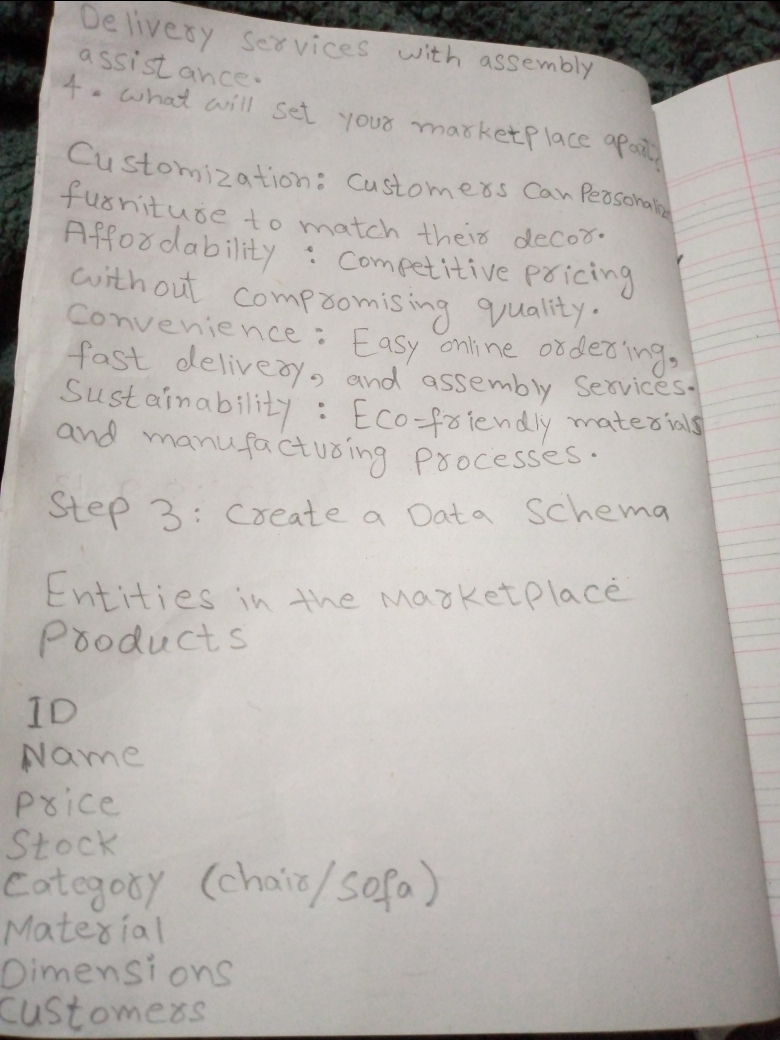 Delivery services with assembly
assistance.
4. what will set your marketplace apart?
Customization: Customers Can Personalize
furniture to match their decor.
Affordability : Competitive pricing
without compromising quality.
Convenience: Easy online ordering,
fast delivery, and assembly Services.
Sustainability : Eco-friendly materials
and manufacturing processes.
Step 3: Create a Data Schema
Entities in the Marketplace
Products
ID
Name
Price
Stock
Category (chair/sofa)
Material
Dimensions
Customers